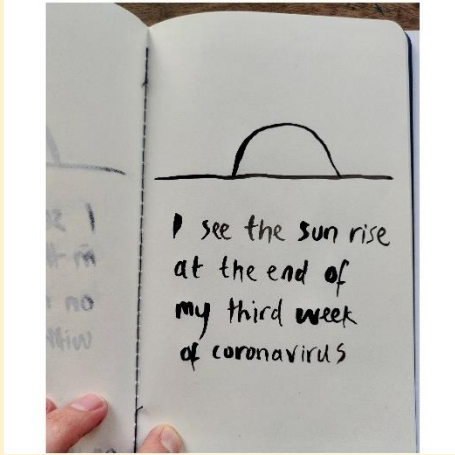 I see the sun rise
at the end of
my third week
of coronavirus